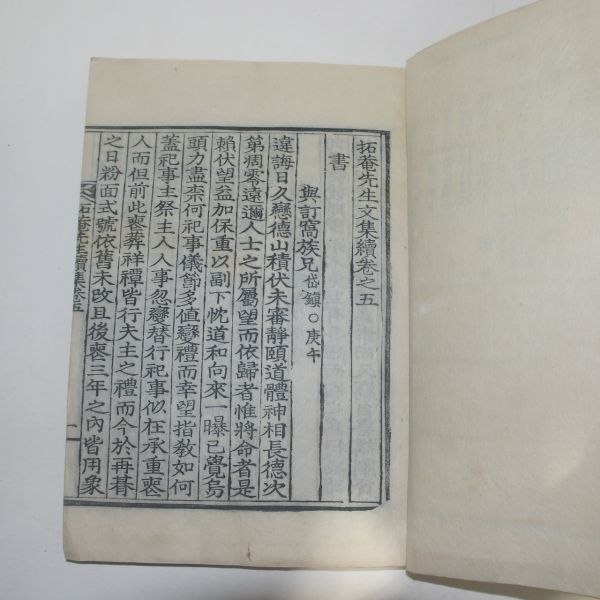 拓菴先生文集續卷之五
書
與訂窩族兄岱鎭○庚午
違誨日久戀德山積伏未審靜頤道體神相長德次
第凋零遠邇人士之所屬望而依歸者惟將命者是
賴伏望益加保重以副下忱道和向來一曝已覺烏
頭力盡柰何祀事儀節多值變禮而幸望指敎如何
蓋祀事主祭主人人事忽變替行祀事似在承重喪
人而但前此喪葬祥禫皆行夫主之禮而今於再朞
之日粉面式號依舊未改且後喪三年之內皆用象
拓菴先生續集卷五
一